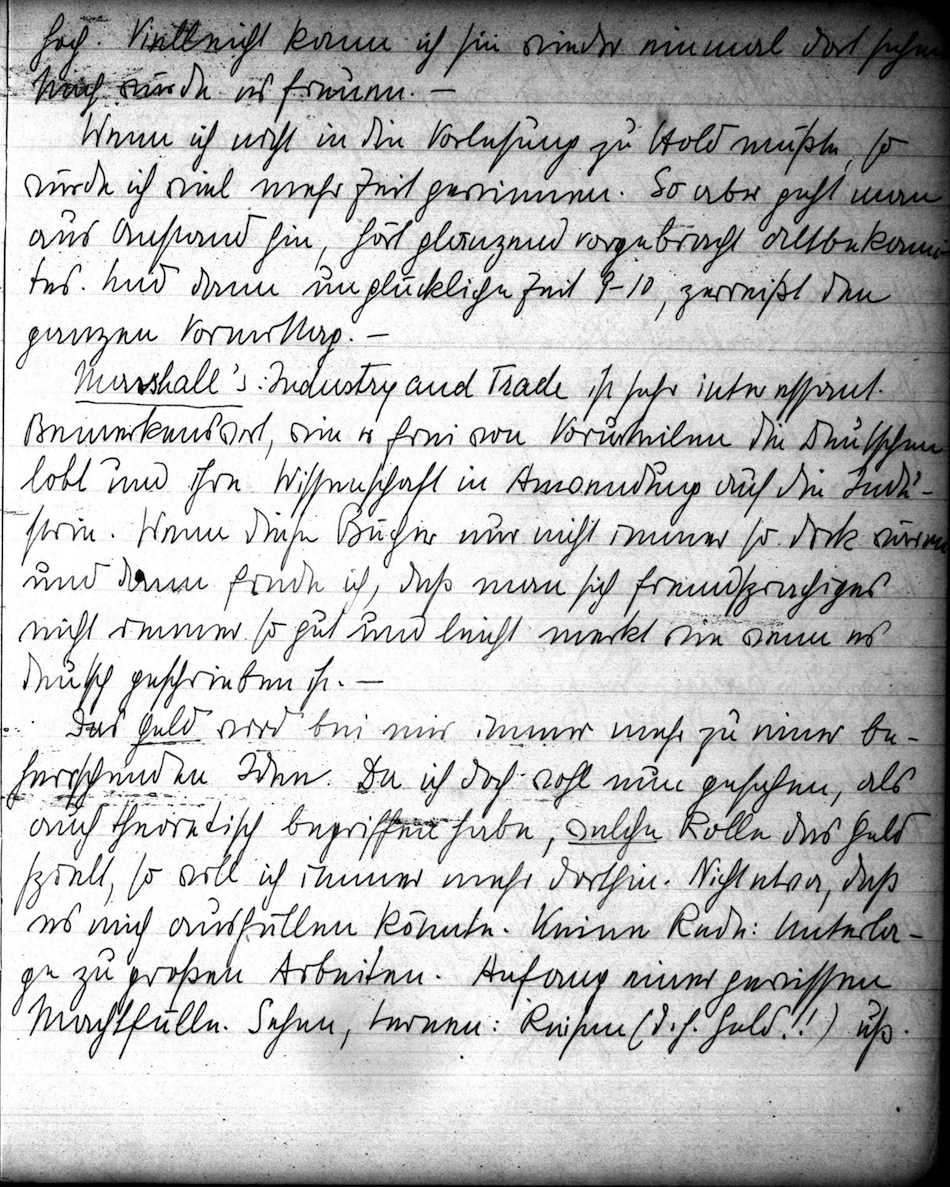 hoch. Vielleicht kann ich sie wieder einmal dort sehen
Mich würde es freuen. —
Wenn ich nicht in die Vorlesung zu Hold müßte, so
würde ich viel mehr Zeit gewinnen. So aber geht man
aus Anstand hin, hört glänzend vorgebracht altbekann-
tes. Und dann unglückliche Zeit 9-10, zerreißt den
ganzen Vormittag. —
Marshall's: Industry and Trade ist sehr interessant.
Bemerkenswert, wie er frei von Vorurteilen die Deutschen
lobt und ihre Wissenschaft in Anwendung auf die Indu-
strie. Wenn diese Bücher nur nicht immer so dick wären
und dann finde ich, daß man sich fremdsprachiges
nicht immer so gut und leicht merkt wie wenn es
deutsch geschrieben ist. —
Das Geld wird bei mir immer mehr zu einer be-
herrschenden Idee. Da ich doch wohl nun gesehen, als
auch theoretisch begriffen habe, welche Rolle das Geld
spielt, so will ich immer mehr dorthin. Nicht etwa, daß
es mich ausfüllen könnte. Keine Rede: Unterla-
ge zu großen Arbeiten. Anfang einer gewissen
Machtfülle. Sehen, lernen: Reisen (d.h. Geld!!) usf.